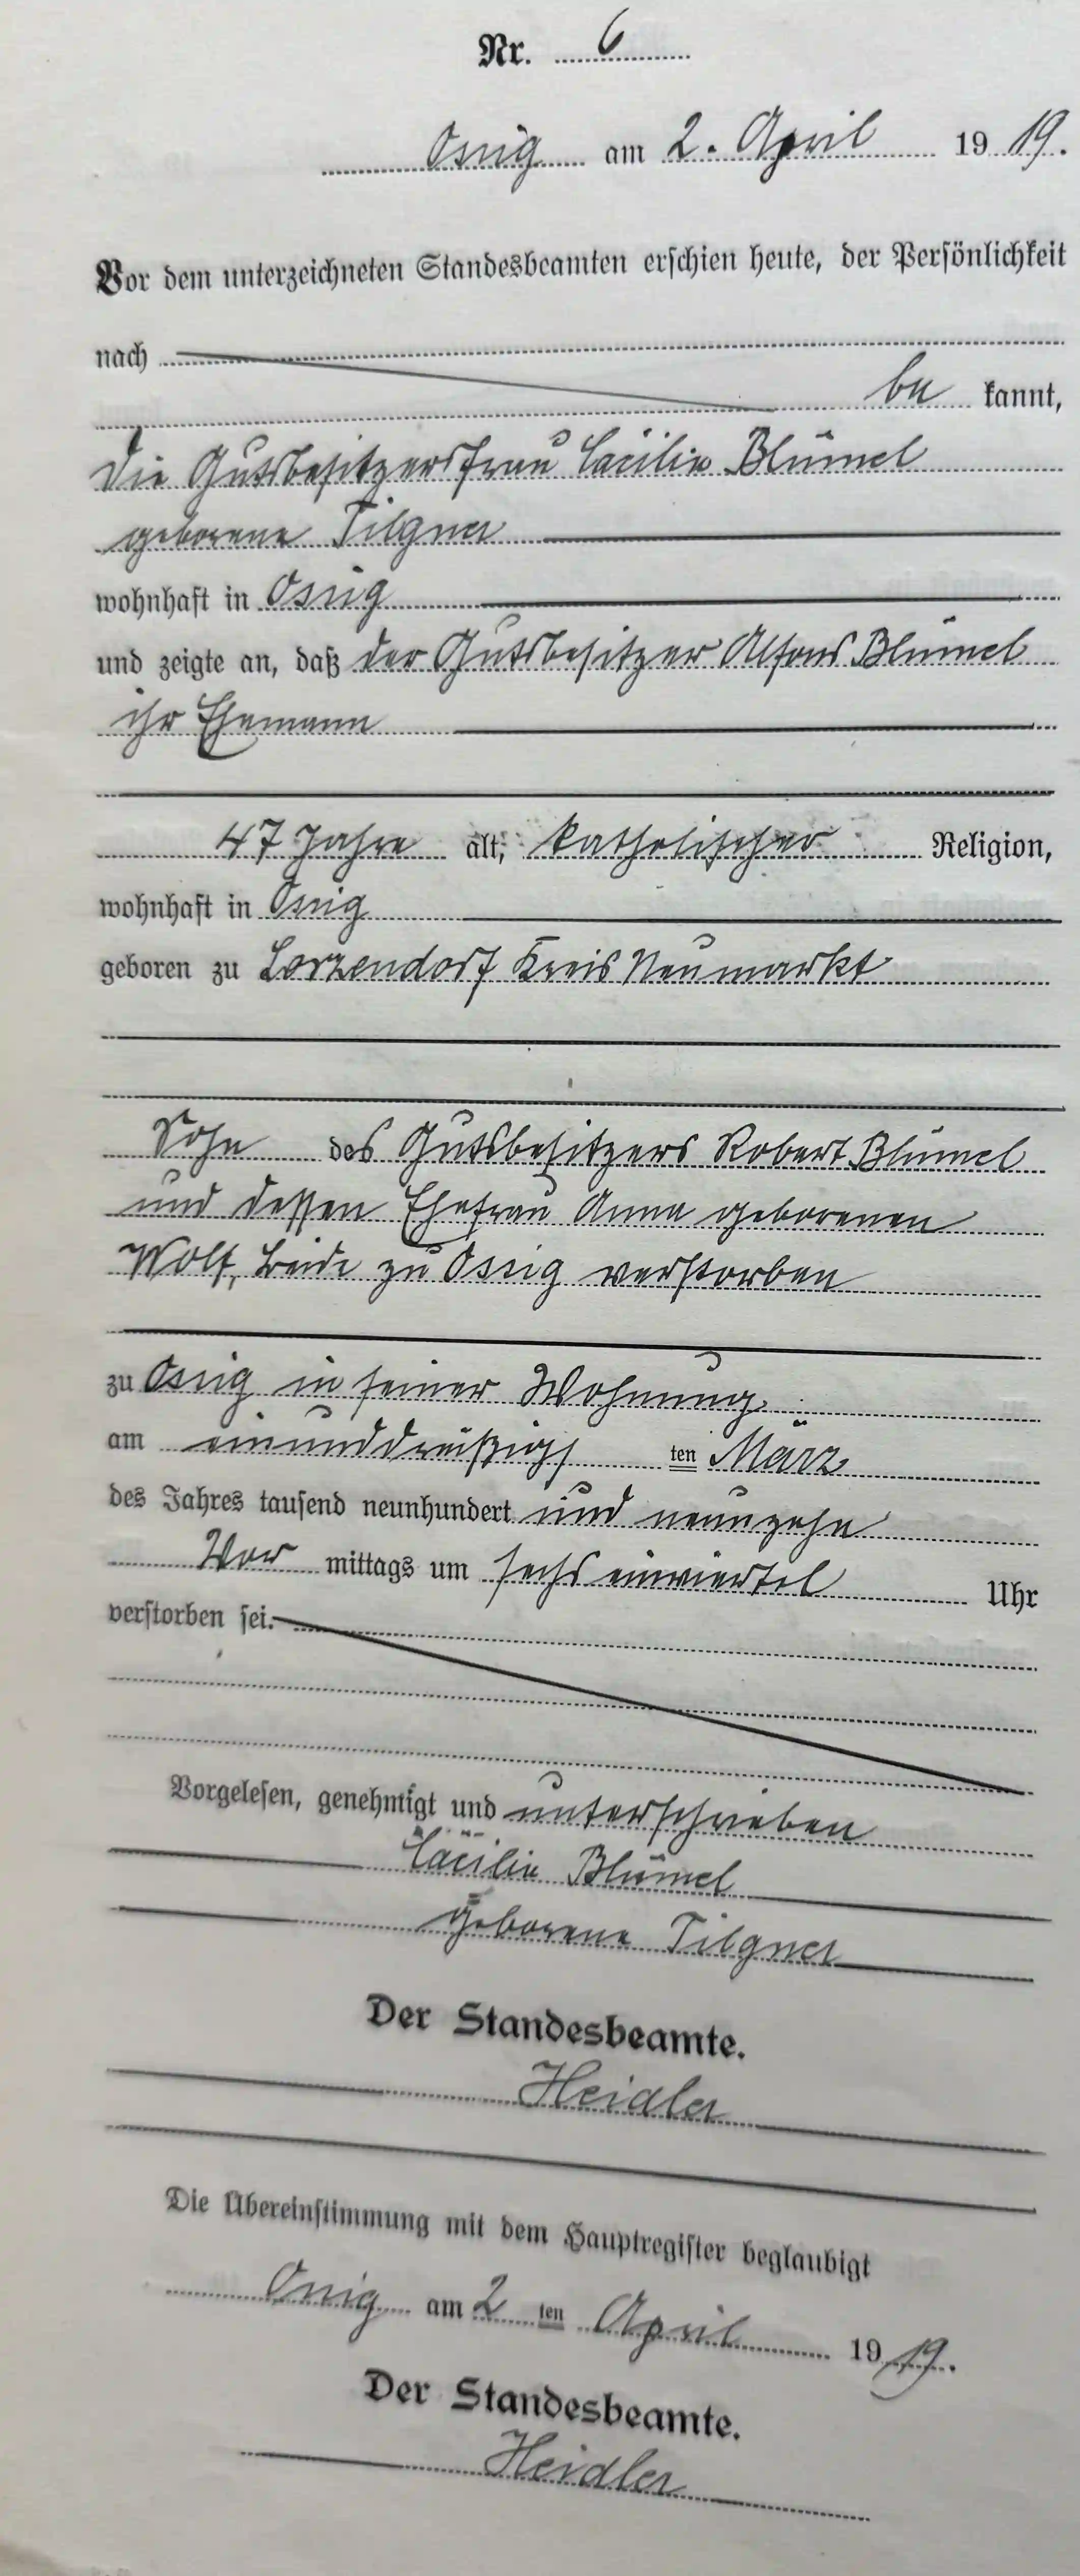 Nr. 6
Ossig am 2. April 1919.
Vor dem unterzeichneten Standesbeamten erschien heute, der Persönlichkeit
nach
be kannt,
die Gutsbesitzersfrau Cäcilie Blümel
geborene Tilgner
wohnhaft in Ossig
und zeigte an, daß der Gutsbesitzer Alfons Blümel
ihr Ehemann
47 Jahre alt, katholischer Religion,
wohnhaft in Ossig
geboren zu Lorzendorf Kreis Neumarkt
Sohn des Gutsbesitzers Robert Blümel
und dessen Ehefrau Anna geborenen
Wolf, beide zu Ossig verstorben
zu Ossig in seiner Wohnung
am einunddreißigs ten März
des Jahres tausend neunhundert und neunzehn
Vor mittags um sechs einviertel Uhr
verstorben sei.
Vorgelesen, genehmigt und unterschrieben
Cäcilie Blümel
geborene Tilgner
Der Standesbeamte.
Heidler
Die Übereinstimmung mit dem Hauptregister beglaubigt
Ossig am 2 ten April 1919.
Der Standesbeamte.
Heidler